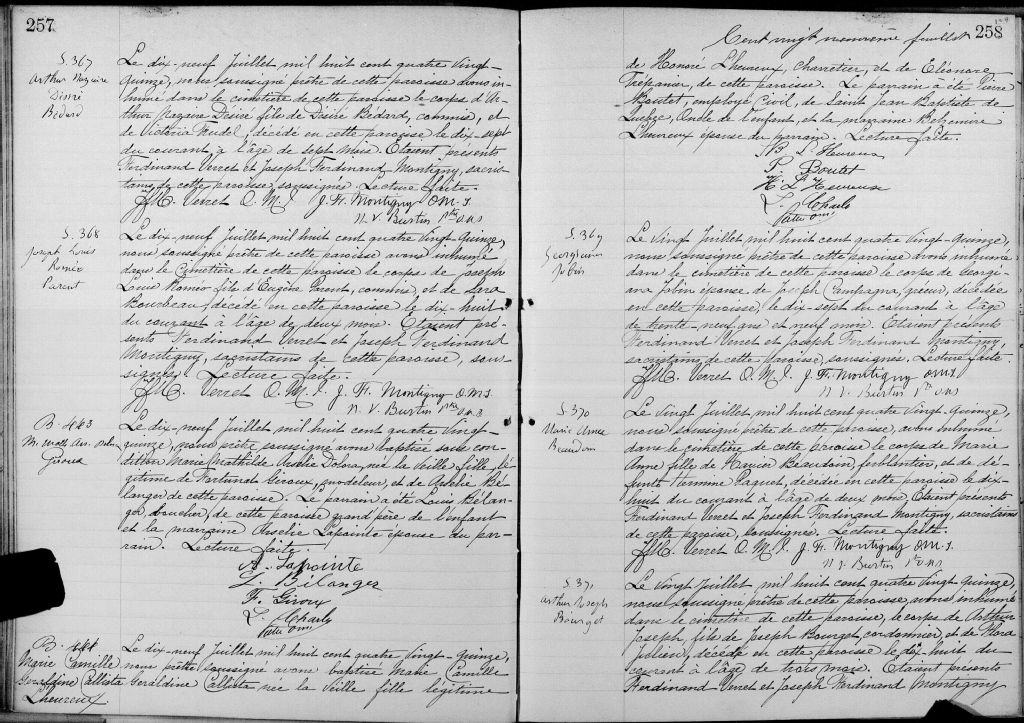 257
S. 367
Arthur Nazaire
Désiré
Bédard
Le dix-neuf Juillet mil huit cent quatre vingt-
quinze, nous soussigné prêtre de cette paroisse avons in-
humé dans le cimetière de cette paroisse le corps d'Ar-
thur Nazaire Désiré fils de Désiré Bédard, commis, et
de Victoria décédé en cette paroisse le dix-sept
du courant à l'âge de sept mois. Etaient présents
Ferdinand Verret et Joseph Ferdinand Montigny, sacris-
tains de cette paroisse, soussignés. Lecture faite.
Verret O. M. I. J. Fd. Montigny O.M.I.
N. V. Burtin ptre O.M.I
S. 368
Joseph Louis
Roméo
Parent
Le dix-neuf Juillet mil huit cent quatre vingt-quinze,
nous soussigné prêtre de cette paroisse avons inhumé
dans le cimetière de cette paroisse le corps de Joseph
Louis Roméo fils d'Eugène Parent, commis, et de Sara
décédé en cette paroisse le dix-huit
du courant à l'âge de deux mois. Etaient pré-
sents Ferdinand Verret et Joseph Ferdinand
Montigny, sacristains de cette paroisse, sous-
signés. Lecture faite.
Verret O. M. I. J. Fd. Montigny O.M.I.
N. V. Burtin ptre O.M.I
B. 463
Giroux
Le dix-neuf Juillet mil huit cent quatre vingt-
quinze, nous prêtre soussigné avons baptisé sous con-
dition Marie Mathilde née la veille fille lé-
gitime de Fortunat Giroux, modeleur, et de Bé-
langer de cette paroisse. Le parrain a été Louis Bélan-
ger, boucher, de cette paroisse grand père de l'enfant
et la marraine Lapointe épouse du par-
rain. Lecture faite.
A. Lapointe
L. Bélanger
F. Giroux
B. 464
Marie Camille
Géraldine Callista
Lheureux
Le dix-neuf Juillet mil huit cent quatre vingt-quinze,
nous prêtre soussigné avons baptisé Marie Camille
Géraldine Callista née la veille fille légitime
258
Cent vingt neuvième feuillet
de Honoré Lheureux, charretier, et de Eléonore
Trépanier, de cette paroisse. Le parrain a été Pierre
Boutet, employé civil, de Saint Jean Baptiste de
Québec, oncle de l'enfant, et la marraine
Lheureux épouse du parrain. Lecture faite.
L'Heureux
P. Boutet
H. L'Heureux
S. 369
Georgianna
Jobin
Le vingt Juillet mil huit cent quatre vingt-quinze,
nous soussigné prêtre de cette paroisse avons inhumé
dans le cimetière de cette paroisse le corps de Georgi-
ana Jobin épouse de Joseph Campagna, décédée
en cette paroisse, le dix-sept du courant à l'âge
de trente-neuf ans et neuf mois. Etaient présents
Ferdinand Verret et Joseph Ferdinand Montigny,
sacristains, de cette paroisse, soussignés. Lecture faite
Verret O. M. I. J. Fd. Montigny O.M.I.
N V Burtin ptre O.M.I
S. 370
Marie Anne
Beaudoin
Le vingt Juillet mil huit cent quatre vingt-quinze,
nous soussigné prêtre de cette paroisse, avons inhumé
dans le cimetière de cette paroisse le corps de Marie
Anne fille de Beaudoin, ferblantier, et de dé-
funte Paquet, décédée en cette paroisse le dix-
huit du courant à l'âge de deux mois. Etaient présents
Ferdinand Verret et Joseph Ferdinand Montigny, sacristains
de cette paroisse, soussignés. Lecture faite.
Verret O. M. I. J. Fd. Montigny O.M.I.
N V Burtin ptre O.M.I
S. 371
Arthur Joseph
Bourget
Le vingt Juillet mil huit cent quatre vingt quinze,
nous soussigné prêtre de cette paroisse, avons inhumé
dans le cimetière de cette paroisse, le corps de Arthur
Joseph, fils de Joseph Bourget, cordonnier, et de Flora
Julien, décédé en cette paroisse le dix-huit du
courant à l'âge de trois mois. Etaient présents
Ferdinand Verret et Joseph Ferdinand Montigny